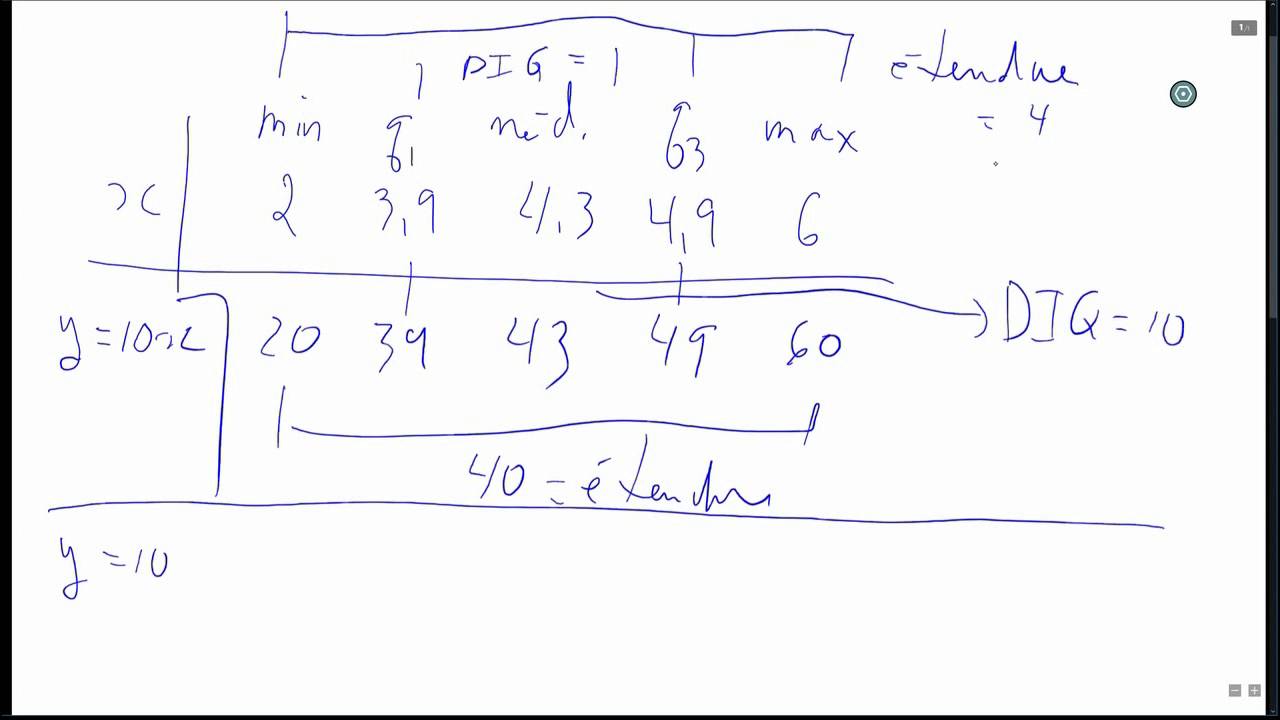 DIG = 1
étendue
= 4
min q1 méd. q3 max
x 2 3,9 4,3 4,9 6
y=10x 20 39 43 49 60
DIQ=10
40 = étendue
y =10